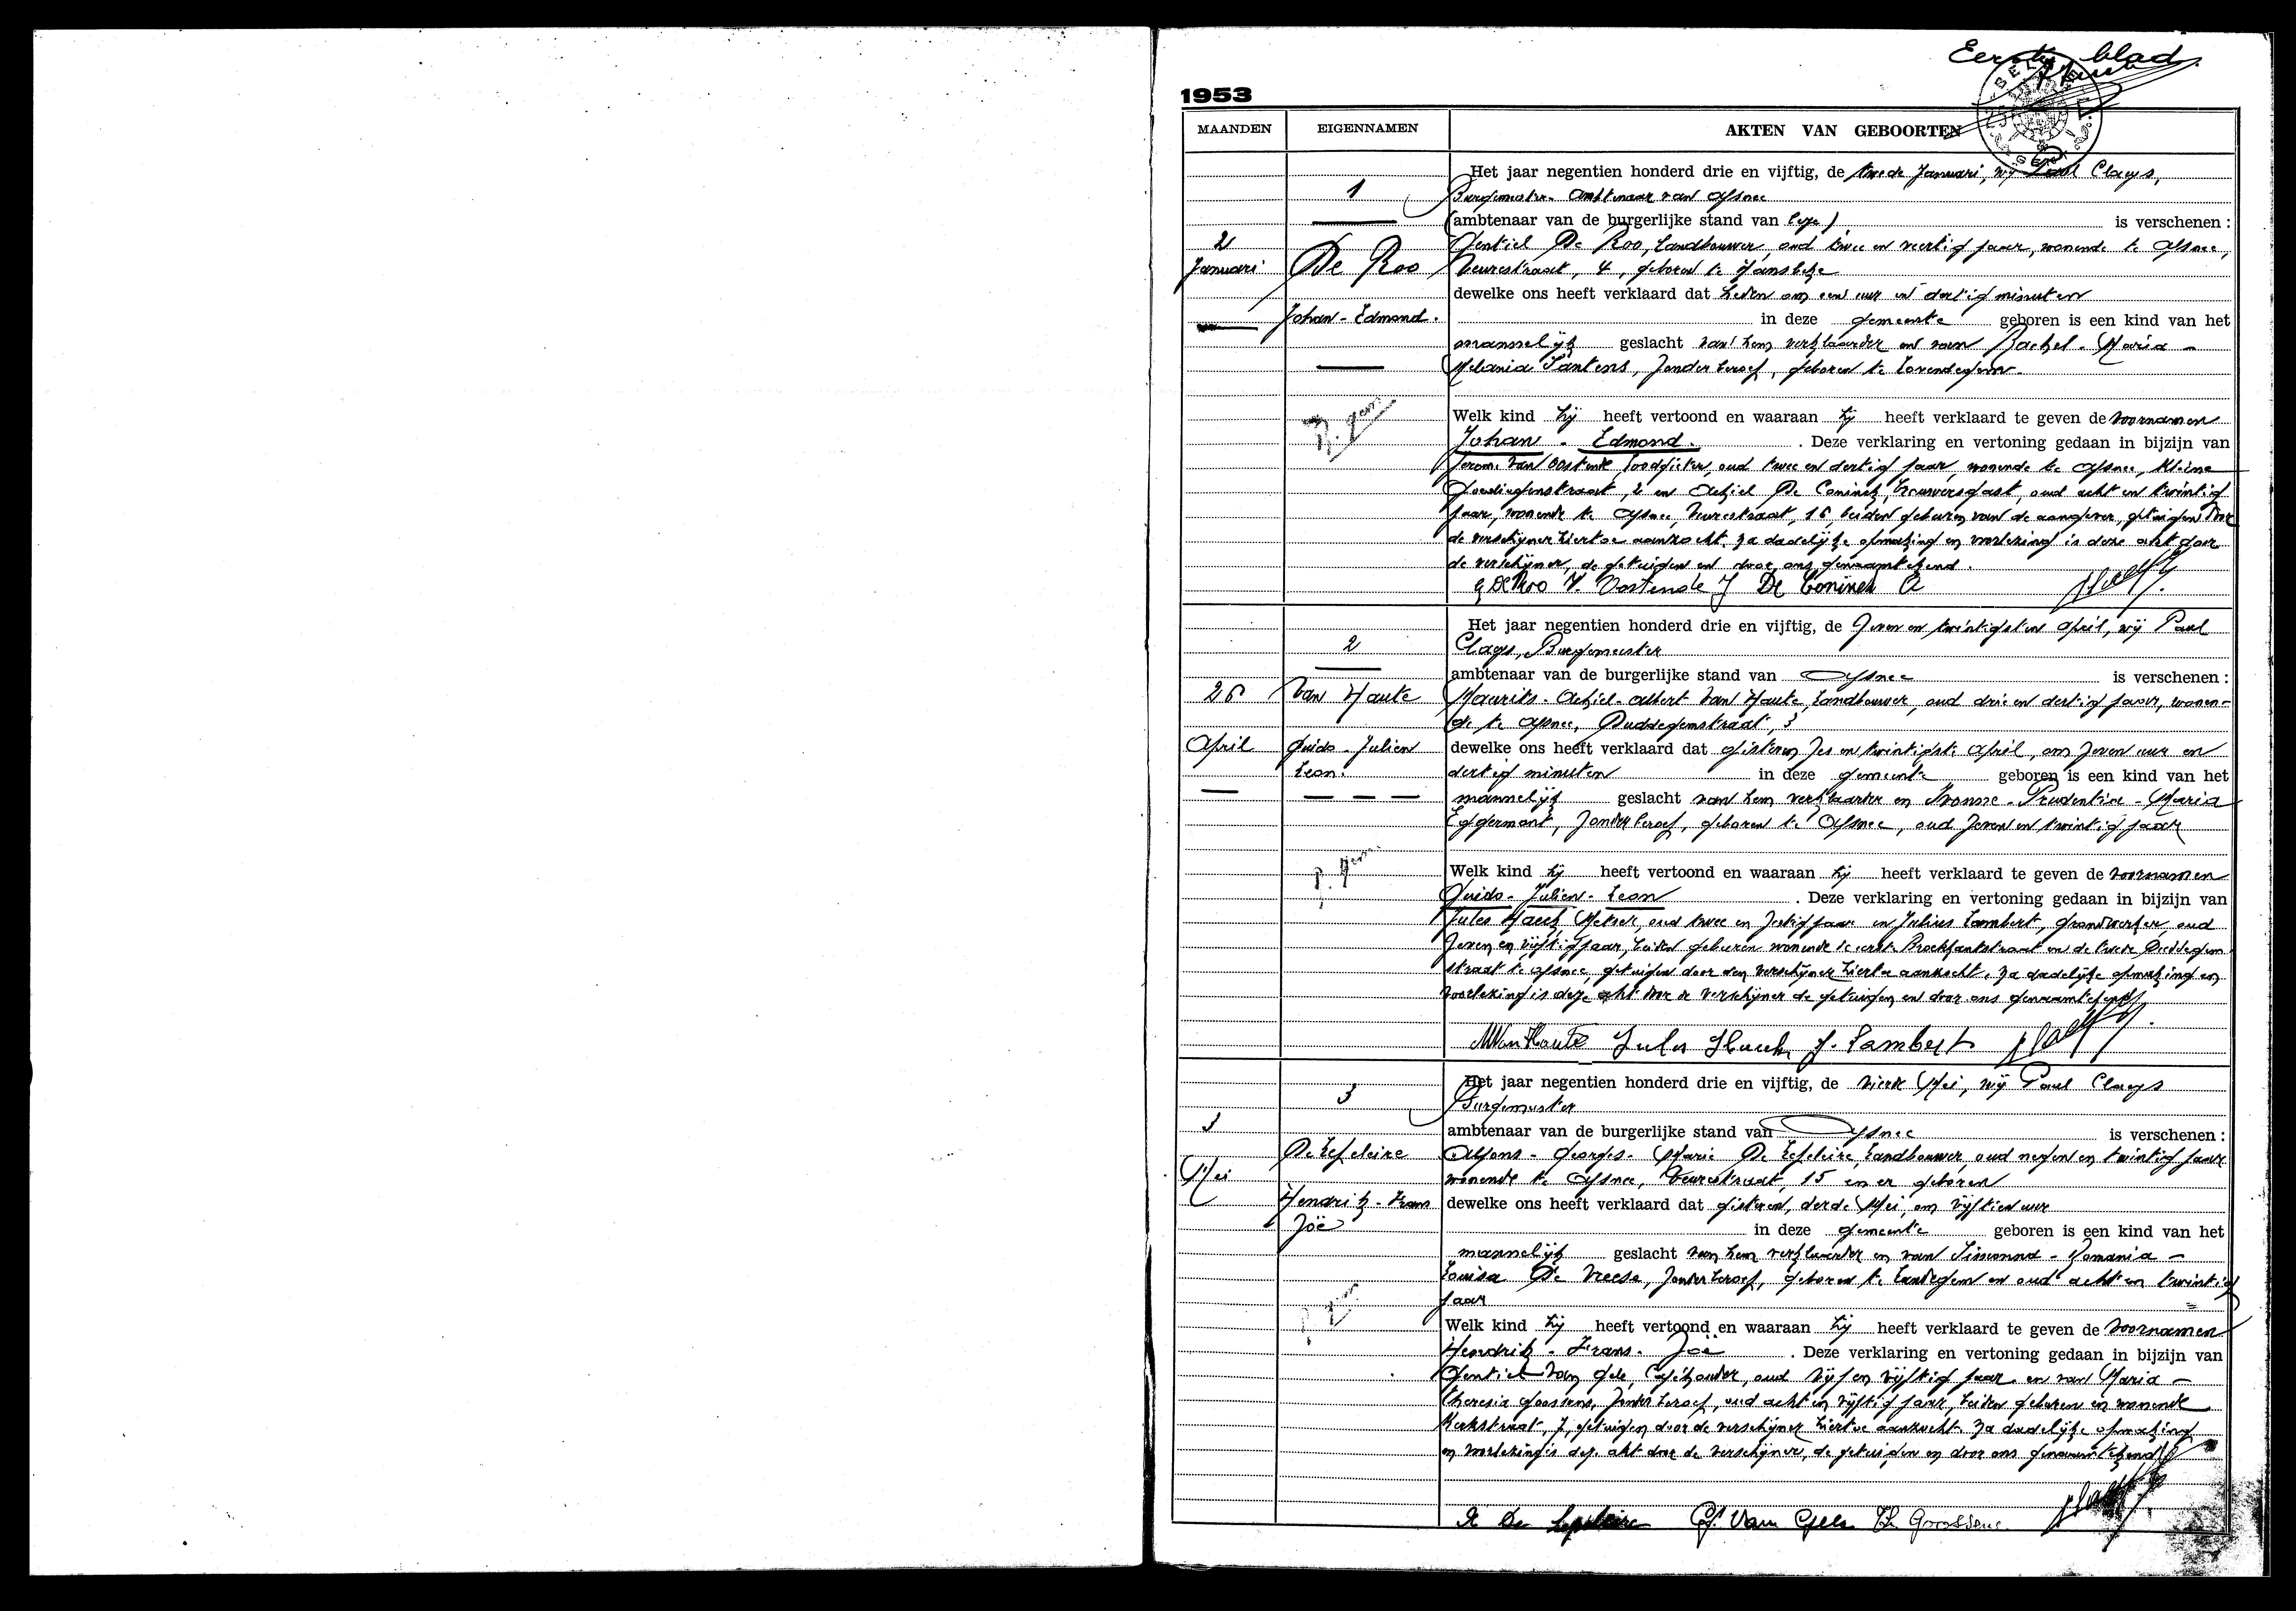 Eerste blad
1953
MAANDEN EIGENNAMEN AKTEN VAN GEBOORTEN
1
2
Januari
De Roo
Johan - Edmond.
Het jaar negentien honderd drie en vijftig, de tweede Januari, wij Paul Claeys,
Burgemeester - Ambtenaar van Afsnee
(ambtenaar van de burgerlijke stand van is verschenen :
De Roo, Landbouwer, oud twee en veertig jaar, wonende te Afsnee,
Veurestraat, 4, geboren te Hansbeke
dewelke ons heeft verklaard dat heden om een uur en dertig minuten
in deze gemeente geboren is een kind van het
mannelijk geslacht van hem verklaarder en van Rachel - Maria -
Melania Santens, zonder beroep, geboren te Lovendegem.
Welk kind hij heeft vertoond en waaraan hij heeft verklaard te geven de voornamen
Johan - Edmond. . Deze verklaring en vertoning gedaan in bijzijn van
Jerome Van Oostende, loodgieter, oud twee en dertig jaar, wonende te Afsnee, Kleine
2 en Achiel De Coninck, brouwersgast, oud acht en twintig
jaar, wonende te Afsnee, Veurestraat, 16, beiden geburen van de aangever, getuigen door
de verschijner hiertoe aanzocht. Na dadelijke opmaking en voorlezing is deze akt door
de verschijner, de getuigen en door ons genaamtekend.
G De Roo V. Oostende J De Coninck A
2
26
April
Van Haute
Guido - Julien
Leon.
Het jaar negentien honderd drie en vijftig, de zeven en twintigsten April, wij Paul
Claeys, Burgemeester
ambtenaar van de burgerlijke stand van Afsnee is verschenen :
Maurits - Achiel - Albert Van Haute, Landbouwer, oud drie en dertig jaar, wonen-
de te Afsnee, Duddegemstraat, 3
dewelke ons heeft verklaard dat gisteren, zes en twintigste April, om zeven uur en
dertig minuten in deze gemeente geboren is een kind van het
mannelijk geslacht van hem verklaarder en Ivonne - Prudentia - Maria
Eggermont, zonder beroep, geboren te Afsnee, oud zeven en twintig jaar
Welk kind hij heeft vertoond en waaraan hij heeft verklaard te geven de voornamen
Guido - Julien - Leon . Deze verklaring en vertoning gedaan in bijzijn van
Jules Haeck, Metser, oud twee en zestig jaar en Julius Lambert, Grondwerker, oud
zeven en vijftig jaar, beiden geburen wonende de eerste Broekkantstraat en de tweede Duddegem
straat te Afsnee, getuigen door den verschijner hiertoe aanzocht. Na dadelijke opmaking en
voorlezing is deze akt door de verschijner de getuigen en door ons genaamtekend
M Van Haute Jules Haeck J. Lambert
3
3
Mei
De Lepeleire
Hendrik - Frans
Joë
Het jaar negentien honderd drie en vijftig, de vierde Mei, wij Paul Claeys
Burgemeester
ambtenaar van de burgerlijke stand van Afsnee is verschenen :
Alfons - Georges - Marie De Lepeleire, Landbouwer, oud negen en twintig jaar
wonende te Afsnee, Veurestraat, 15 en er geboren
dewelke ons heeft verklaard dat gisteren, derde Mei, om vijftien uur
in deze gemeente geboren is een kind van het
mannelijk geslacht van hem verklaarder en van Simonna - Romania -
Louisa De Vreese, zonder beroep, geboren te Landegem en oud acht en twintig
jaar
Welk kind hij heeft vertoond en waaraan hij heeft verklaard te geven de voornamen
Hendrik - Frans - Joë . Deze verklaring en vertoning gedaan in bijzijn van
Van Gele, Caféhouder, oud vijf en vijftig jaar en van Maria -
Theresia Goossens, zonder beroep, oud acht en vijftig jaar, beiden geburen en wonende
Kerkstraat, 7, getuigen door de verschijner hiertoe aanzocht. Na dadelijke opmaking
en voorlezing is deze akt door de verschijner, de getuigen en door ons genaamtekend
A De Lepeleire G. Van Gele Th Goossens